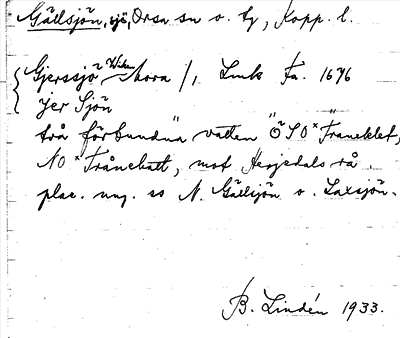 Gällsjön, sjö, Orsa sn o. tg, Kopp. l.
Gjerssjö Mora /1 Lmk Fa. 1676
Jer Sjön
två förbundna vatten ÖSO × Fräncklet,
NO × Frånehatt, mot Herjedals rå
plac. ung. ss N. Gällsjön o. Laxsjön.
B. Lindén 1933.